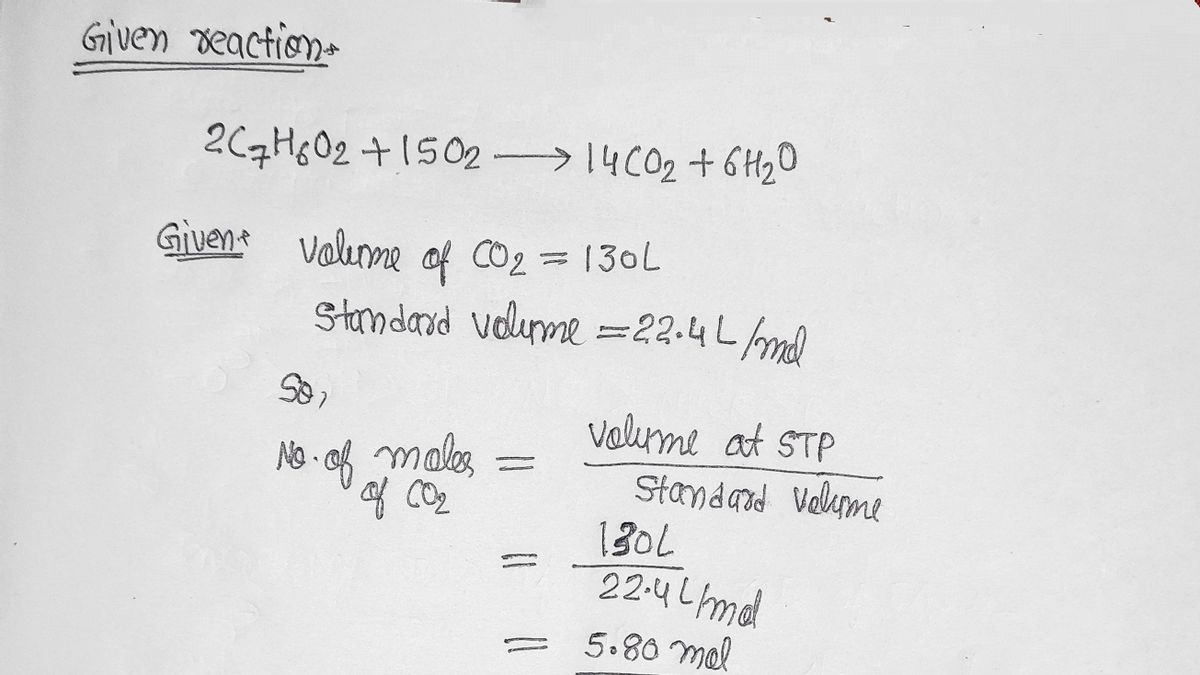 Given reaction:
2C₇H₆O₂ + 15O₂ ⟶ 14CO₂ + 6H₂O
Given: Volume of CO₂ = 130L
Standard volume = 22.4 L/mol
So,
No. of moles of CO₂ = Volume at STP / Standard Volume
= 130L / 22.4 L/mol
= 5.80 mol